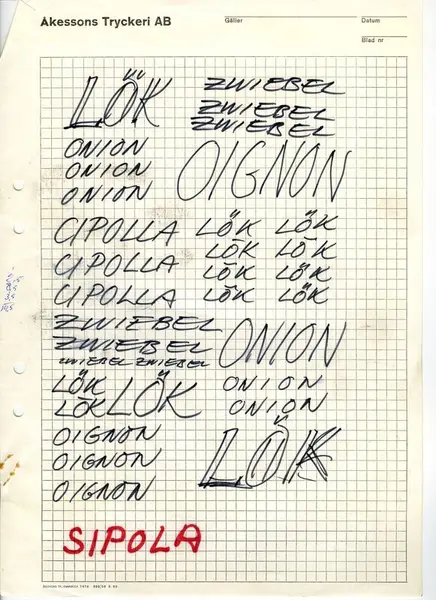 Åkessons Tryckeri AB
Gäller
Datum
Blad nr
LÖK
ZWIEBEL
ZWIEBEL
ZWIEBEL
ONION
ONION
ONION
OIGNON
CIPOLLA LÖK LÖK
LÖK LÖK
CIPOLLA LÖK LÖK
CIPOLLA LÖK LÖK
ZWIEBEL
ZWIEBEL
ZWIEBEL ZWIEBEL
ONION
LÖK
LÖK
LÖK
ONION
ONION
OIGNON
OIGNON
OIGNON
LÖK
SIPOLA